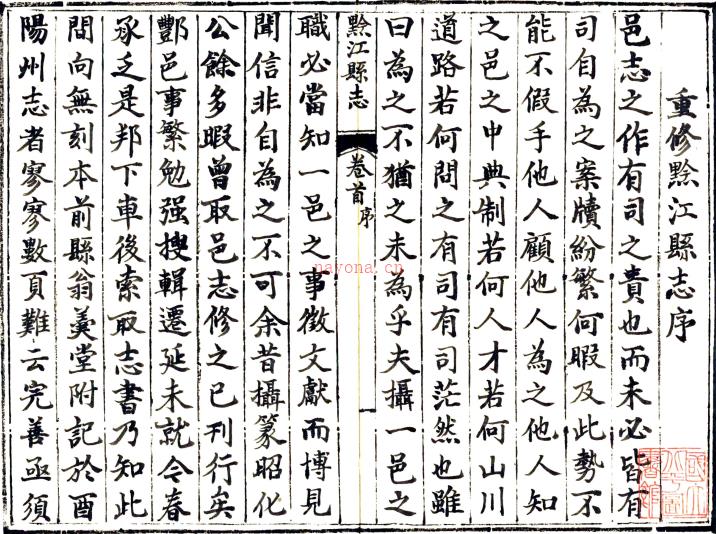 重修黔江縣志序
邑志之作有司之責也而未必皆有
司自為之案牘紛繁何暇及此勢不
能不假手他人顧他人為之他人知
之邑之中典制若何人才若何山川
道路若何問之有司有司茫然也雖
曰為之不猶之未為乎夫攝一邑之
黔江縣志
卷首
序
一
職必當知一邑之事徵文獻而博見
聞信非自為之不可余昔攝篆昭化
公餘多暇曾取邑志修之已刊行矣
酆邑事繁勉强搜輯遷延未就今春
承乏是邦下車後索取志書乃知此
間向無刻本前縣翁羹堂附記於酉
陽州志者寥寥數頁難云完善亟須
nayona.cn